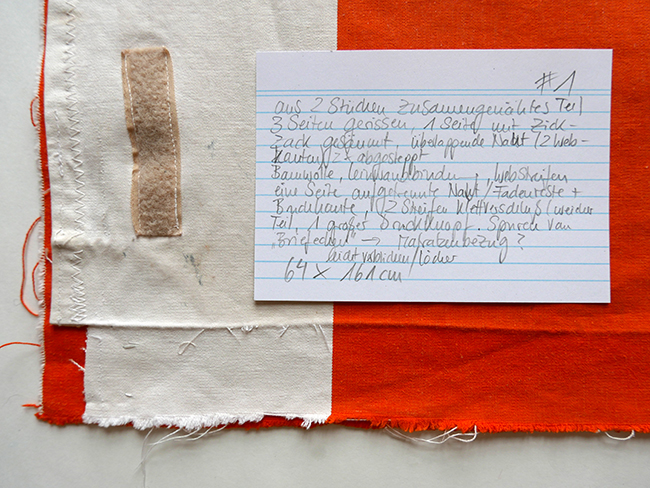 #1
aus 2 Stücken zusammengenähtes Teil
3 Seiten gerissen, 1 Seite mit Zick-
Zack gesäumt, überlappende Naht (2 Web-
kanten) 2x abgesteppt
Baumwolle, leinwandbindig, Webstreifen
eine Seite aufgetrennte Naht / Fadenreste +
Bruchkante, 2 Streifen Klettverschluß (weicher
Teil, 1 großer Druckknopf.
"Briefecken" → Matratzenbezug?
leicht verblichen/Löcher
64 x 161cm